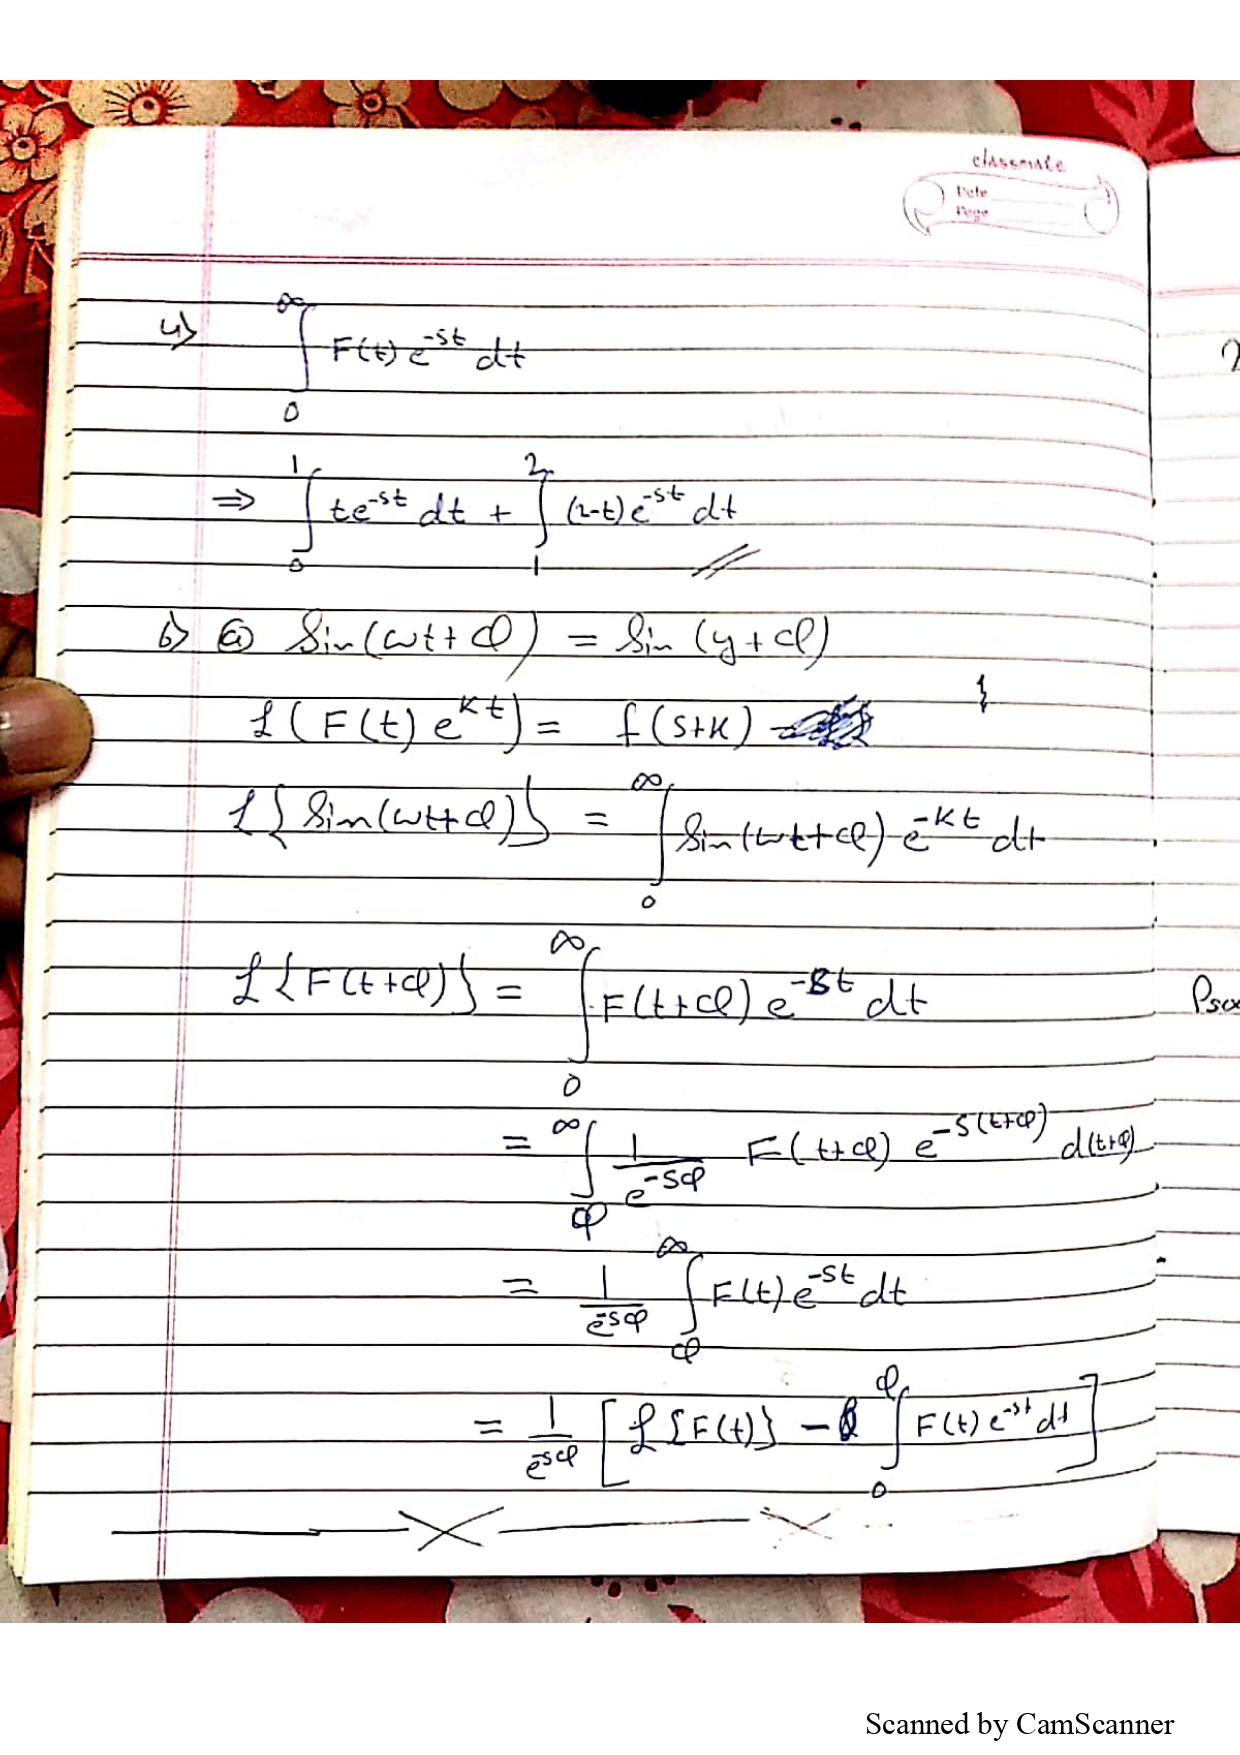 classmate
Date
Page
4)
∞∫0 F(t) e^-st dt
⇒ 1∫0 te^-st dt + 2∫1 (2-t) e^-st dt
6) (a) Sin(ωt+φ) = Sin(y+φ)
L(F(t) e^Kt) = f(S+K)
L{Sin(ωt+φ)} = ∞∫0 Sin(ωt+φ) e^-Kt dt
L{F(t+φ)} = ∞∫0 F(t+φ) e^-st dt
= ∞∫φ 1/e^-sφ F(t+φ) e^-s(t+φ) d(t+φ)
= 1/e^-sφ ∞∫φ F(t) e^-st dt
= 1/e^-sφ [L{F(t)} - φ∫0 F(t) e^-st dt]
Scanned by CamScanner